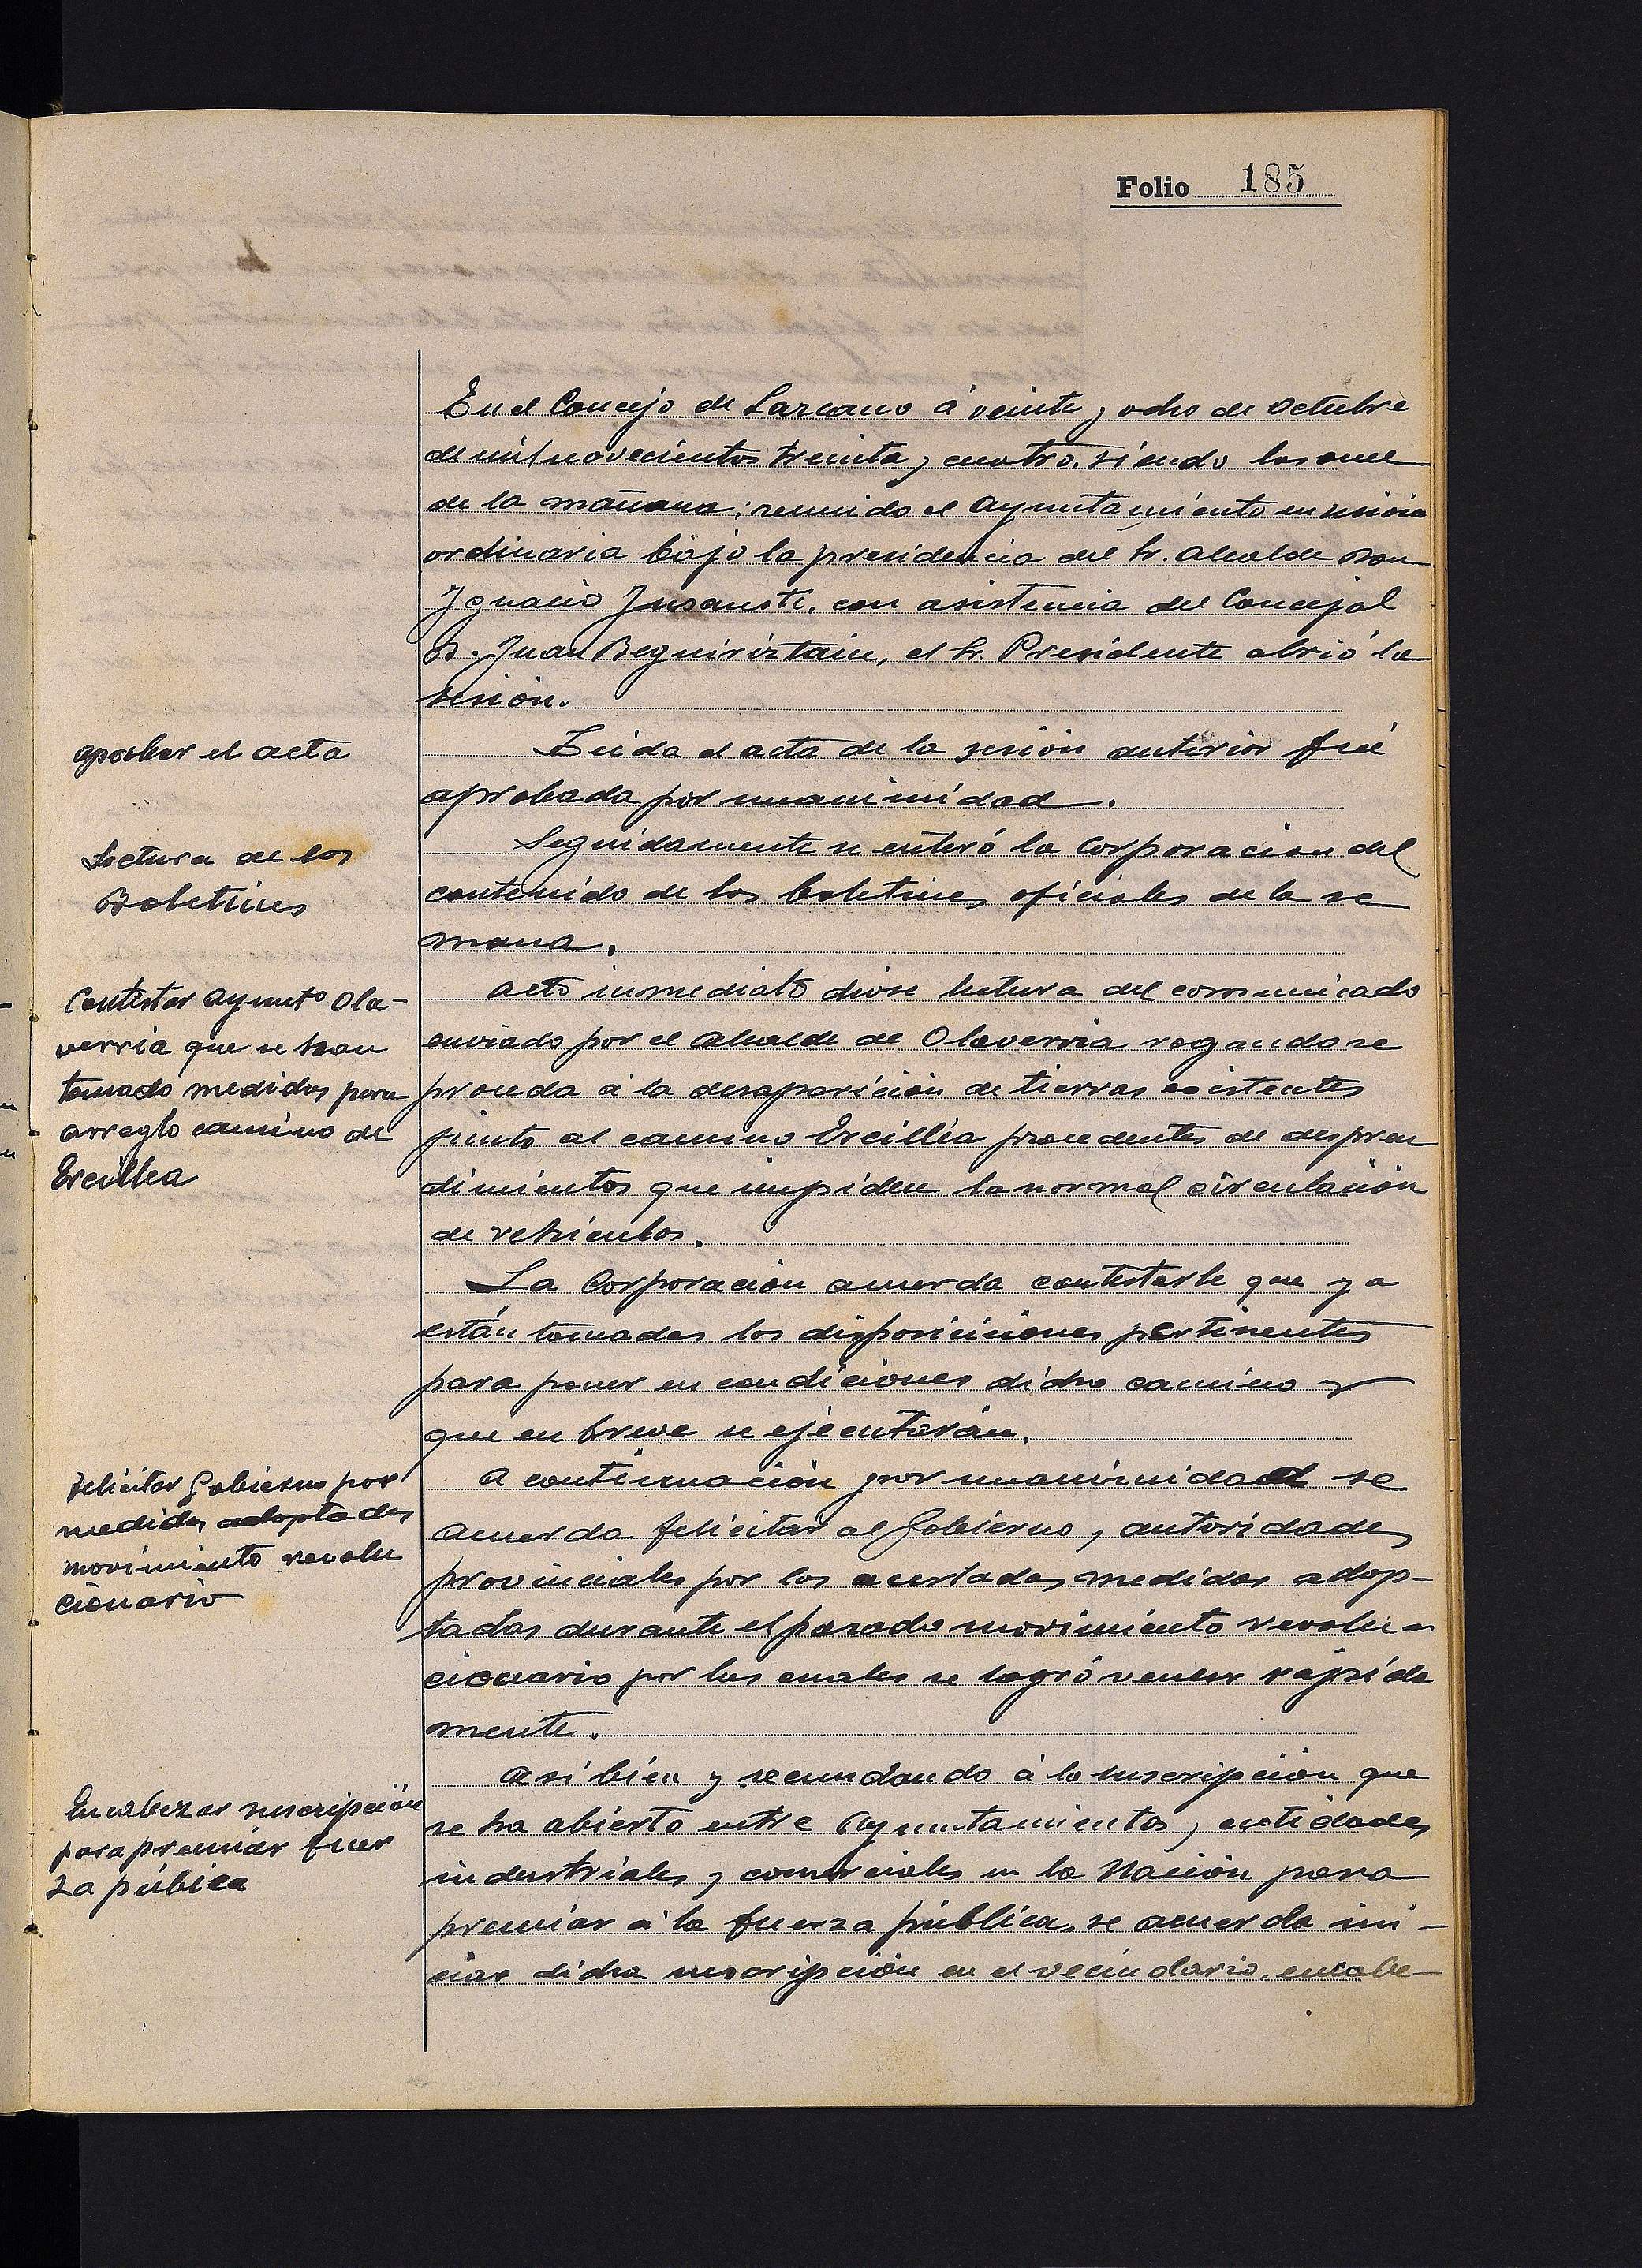 Folio 185
En el Concejo de Lazcano á veinte y ocho de Octubre
de mil novecientos treinta y cuatro, siendo las once
de la mañana; reunido el Ayuntamiento en sesión
ordinaria bajo la presidencia del Sr. Alcalde Don
Ignacio Insausti, con asistencia del Concejal
D. Juan Beguiriztain, el Sr. Presidente abrió la
sesión.
aprobar el acta
Leida el acta de la sesión anterior fué
aprobada por unanimidad.
Lectura de los
Boletines
Seguidamente se enteró la Corporacion del
contenido de los boletines oficiales de la se
mana.
Contestar Ayuntº Ola-
verria que se han
tomado medidas para
arreglo camino de
Ercillea
Acto inmediato diose lectura del comunicado
enviado por el Alcalde de Olaverria rogando se
proceda á la desaparición de tierras existentes
junto al camino Ercillia procedentes de despren
dimientos que impiden la normal circulación
de vehiculos.
La Corporación acuerda contestarle que ya
están tomadas las disposiciciones pertinentes
para poner en condiciones dicho camino y
que en breve se ejecutarán.
Felicitar Gobierno por
medidas adoptadas
movimiento revolu
cionario
A continuación por unanimidad se
acuerda felicitar al Gobierno y autoridades
provinciales por las acertadas medidas adop-
tadas durante el pasado movimiento revolu-
cionario por las cuales se logró vencer rápida
mente.
Encabezar suscripción
para premiar fuer
za púbica
Asi bien y secundando á la suscripción que
se ha abierto entre Ayuntamientos y entidades
industriales y comerciales en la Nación para
premiar á la fuerza pública, se acuerda ini-
ciar dicha suscripción en el vecindario, encabe-